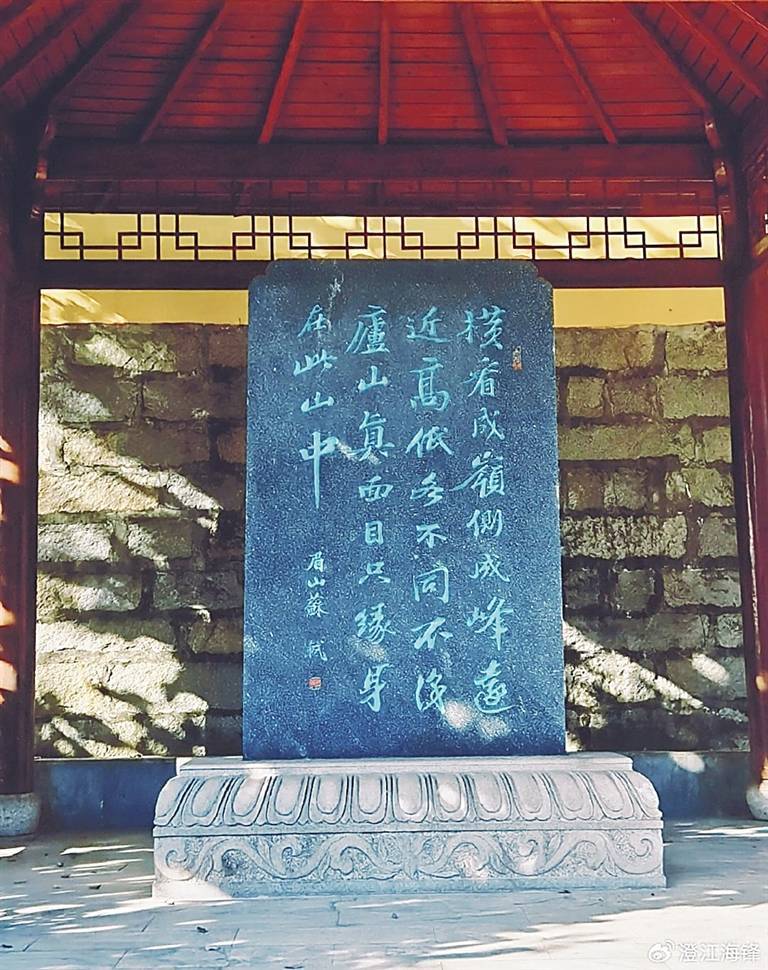 橫看成嶺側成峰遠
近高低各不同不識
廬山眞面目只緣身
在此山中
眉山蘇軾
澄江海锋